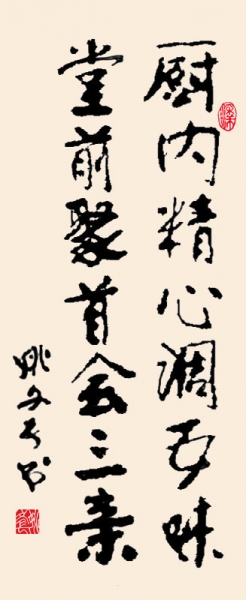 厨内精心调百味
堂前聚首会三亲
姚文奇书